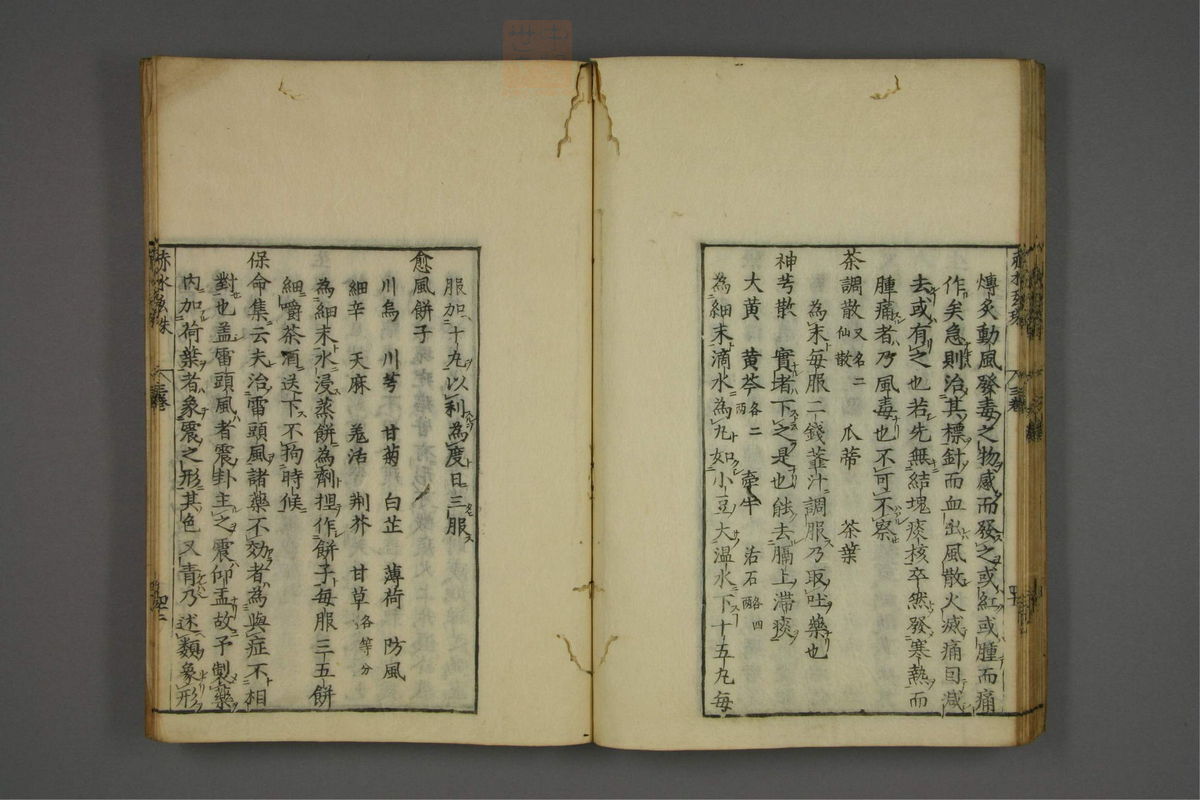 傅炙動風發毒之物感而發之或紅或腫而痛
作矣急則治其標針而血出風散火滅痛自減
去或有之也若先無結塊痰核卒然發寒熱而
腫痛者乃風毒也不可不察
茶調散 又名二仙散 瓜蒂 茶葉
為末每服二錢虀汁調服乃取吐藥也
神芎散 實者下之是也能去膈上滯痰
大黃 黃芩各二兩 牽牛 滑石各四兩
為細末滴水為丸如小豆大溫水下十五丸每
服加十丸以利為度日三服
愈風餅子
川烏 川芎 甘菊 白芷 薄荷 防風
細辛 天麻 羗活 荆芥 甘草各等分
為細末水浸蒸餅為劑捏作餅子每服三五餅
細嚼茶酒送下不拘時候
保命集云夫治雷頭風諸藥不効者為與症不相
對也盖雷頭風者震卦主之震仰盂故予製藥
內加荷葉者象震之形其色又青乃述類象形
赤水玄珠 三卷